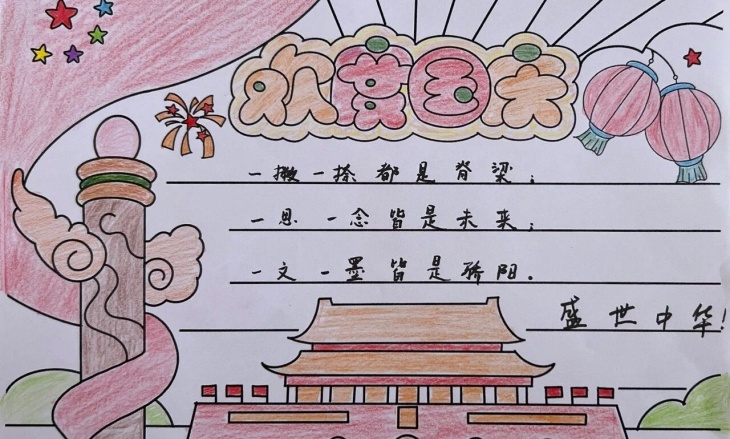 欢度国庆
一撇一捺都是脊梁；
一思一念皆是未来；
一文一墨皆是骄阳。
盛世中华！